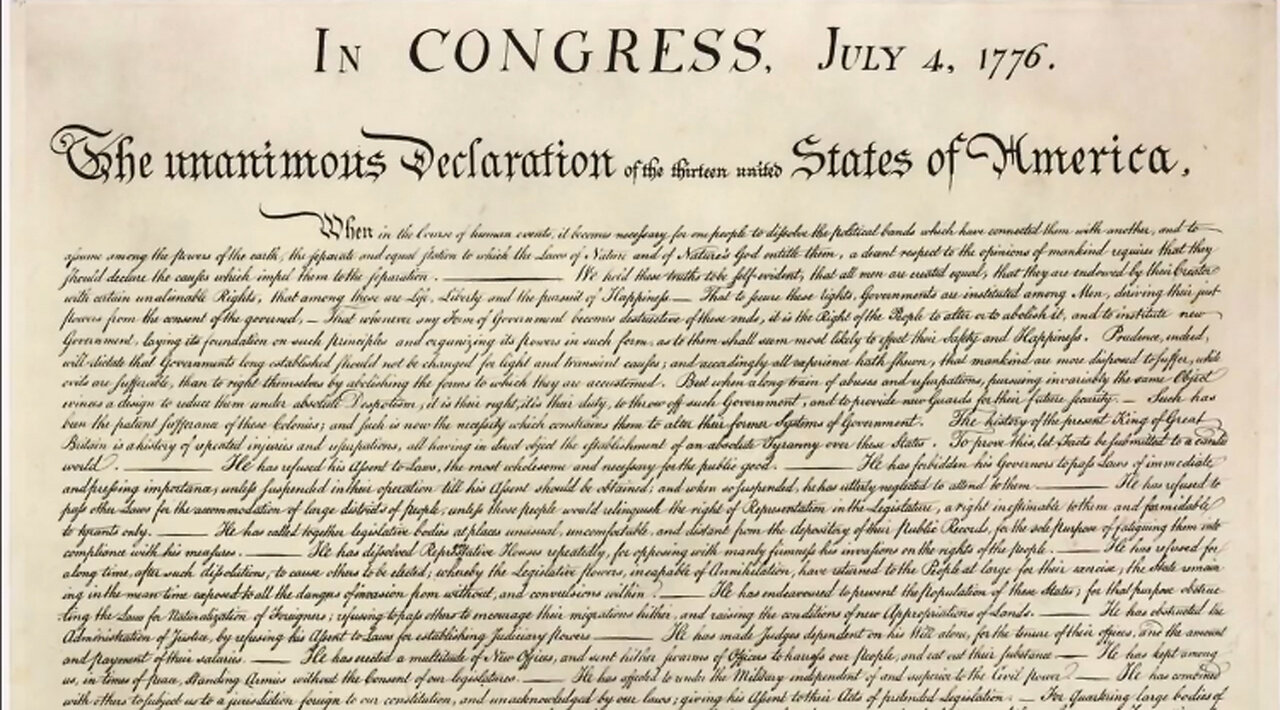 In CONGRESS, July 4, 1776.
The unanimous Declaration of the thirteen united States of America,
When in the Course of human events, it becomes necessary for one people to dissolve the political bands which have connected them with another, and to
assume among the powers of the earth, the separate and equal station to which the Laws of Nature and of Nature's God entitle them, a decent respect to the opinions of mankind requires that they
should declare the causes which impel them to the separation. ——— We hold these truths to be self-evident, that all men are created equal, that they are endowed by their Creator
with certain unalienable Rights, that among these are Life, Liberty and the pursuit of Happiness.— That to secure these rights, Governments are instituted among Men, deriving their just
powers from the consent of the governed, — That whenever any Form of Government becomes destructive of these ends, it is the Right of the People to alter or to abolish it, and to institute new
Government, laying its foundation on such principles and organizing its powers in such form, as to them shall seem most likely to effect their Safety and Happiness. Prudence, indeed,
will dictate that Governments long established should not be changed for light and transient causes; and accordingly all experience hath shewn, that mankind are more disposed to suffer, while
evils are sufferable, than to right themselves by abolishing the forms to which they are accustomed. But when a long train of abuses and usurpations, pursuing invariably the same Object
evinces a design to reduce them under absolute Despotism, it is their right, it is their duty, to throw off such Government, and to provide new Guards for their future security. — Such has
been the patient sufferance of these Colonies; and such is now the necessity which constrains them to alter their former Systems of Government. The history of the present King of Great
Britain is a history of repeated injuries and usurpations, all having in direct object the establishment of an absolute Tyranny over these States. To prove this, let Facts be submitted to a candid
world. ——— He has refused his Assent to Laws, the most wholesome and necessary for the public good. ——— He has forbidden his Governors to pass Laws of immediate
and pressing importance, unless suspended in their operation till his Assent should be obtained; and when so suspended, he has utterly neglected to attend to them. ——— He has refused to
pass other Laws for the accommodation of large districts of people, unless those people would relinquish the right of Representation in the Legislature, a right inestimable to them and formidable
to tyrants only. ——— He has called together legislative bodies at places unusual, uncomfortable, and distant from the depository of their Public Records, for the sole purpose of fatiguing them into
compliance with his measures. ——— He has dissolved Representative Houses repeatedly, for opposing with manly firmness his invasions on the rights of the people. ——— He has refused for
a long time, after such dissolutions, to cause others to be elected; whereby the Legislative powers, incapable of Annihilation, have returned to the People at large for their exercise; the State remain
ing in the mean time exposed to all the dangers of invasion from without, and convulsions within. ——— He has endeavoured to prevent the Population of these States; for that purpose obstruc
ting the Laws for Naturalization of Foreigners; refusing to pass others to encourage their migrations hither, and raising the conditions of new Appropriations of Lands. ——— He has obstructed the
Administration of Justice, by refusing his Assent to Laws for establishing Judiciary powers. ——— He has made Judges dependent on his Will alone, for the tenure of their offices, and the amount
and payment of their salaries. ——— He has erected a multitude of New Offices, and sent hither swarms of Officers to harrass our people, and eat out their substance. ——— He has kept among
us, in times of peace, Standing Armies without the Consent of our legislatures. ——— He has affected to render the Military independent of and superior to the Civil power. ——— He has combined
with others to subject us to a jurisdiction foreign to our constitution, and unacknowledged by our laws; giving his Assent to their Acts of pretended Legislation: — For Quartering large bodies of